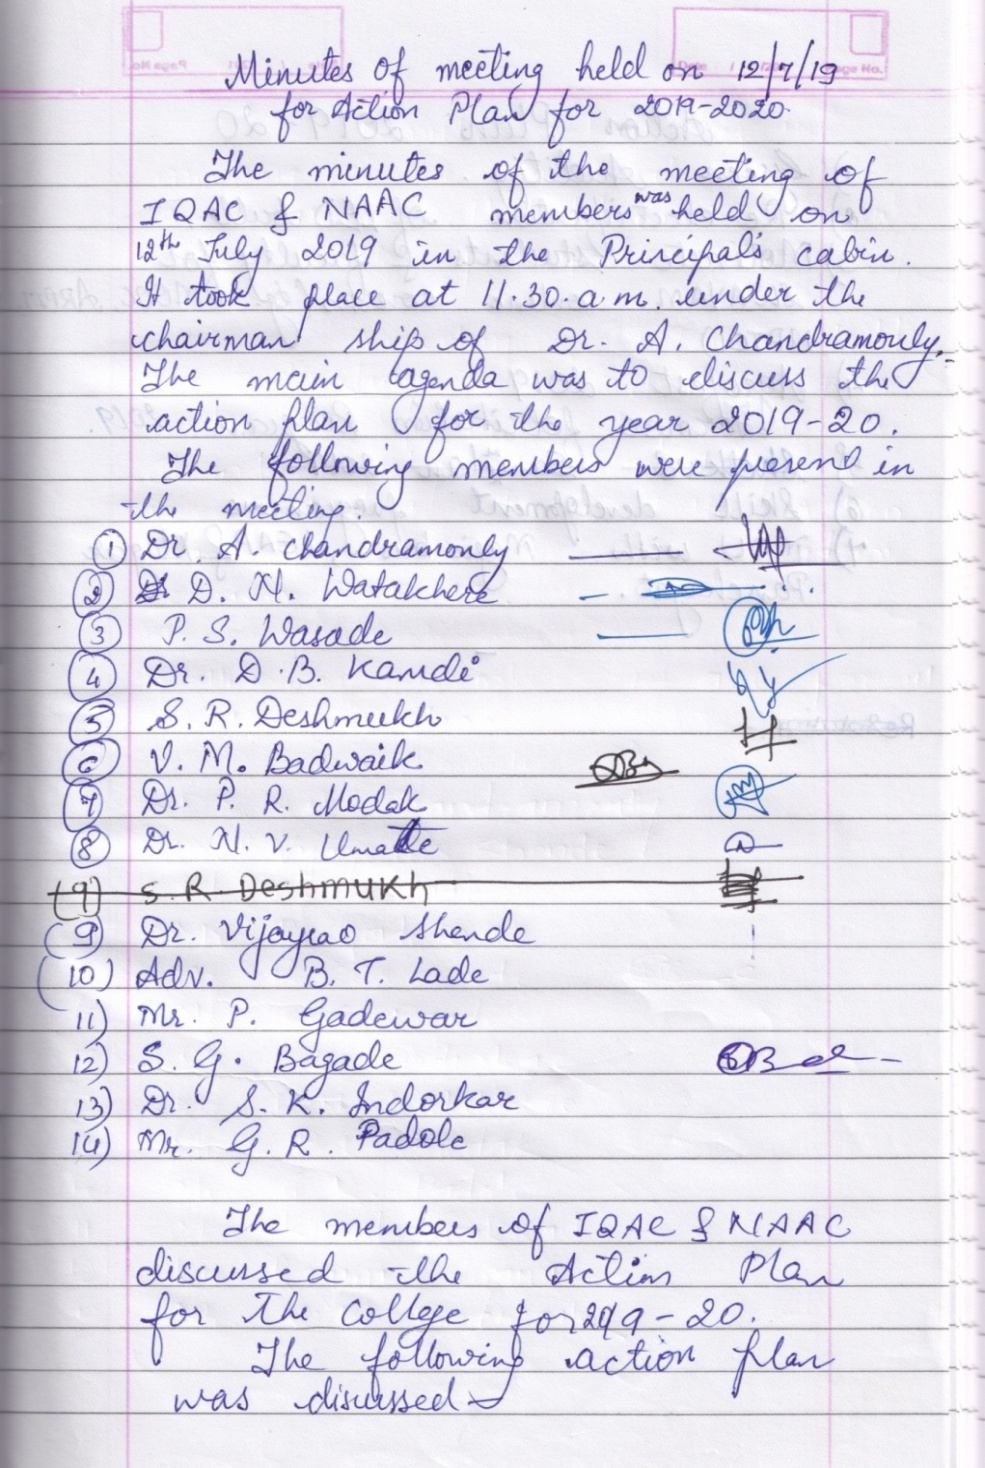 Minutes of meeting held on 12/7/19
for Action Plan for 2019-2020
The minutes of the meeting of
IQAC & NAAC members was held on
12th July 2019 in the Principal's cabin.
It took place at 11.30.a.m. under the
chairman ship of Dr. A. Chandramouly.
The main agenda was to discuss the
action plan for the year 2019-20.
The following members were present in
the meeting.
1 Dr. A. Chandramouly
2 D. N. Watakhere
3 P. S. Wasade
4 Dr. D.B. Kamdi
5 S. R. Deshmukh
6 V. M. Badwaik
7 Dr. P. R. Modak
8 Dr. N. V. Umatte
(9) S. R. Deshmukh
(9) Dr. Vijayrao Shende
(10) Adv. B. T. Lade
11) Mr. P. Gadewar
12) S. G. Bagade
13) Dr. S. K. Indorkar
14) Mr. G. R. Padole
The members of IQAC & NAAC
discussed the Action Plan
for the college for 2019-20.
The following action plan
was discussed